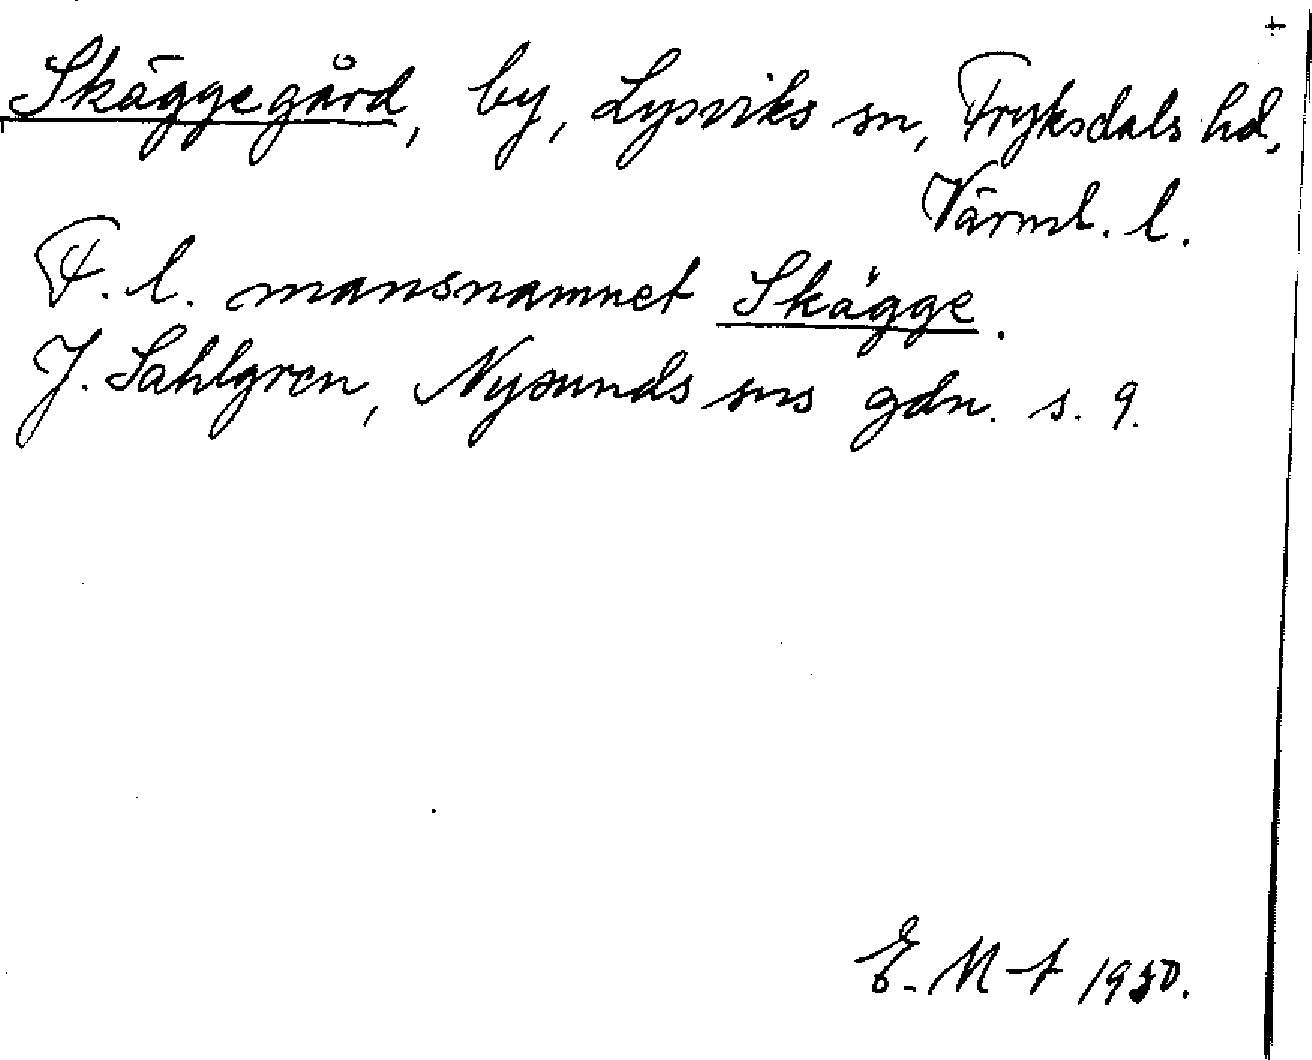 +
Skäggegård, by, Lysviks sn, Fryksdals hd,
Värml. l.
F. l. mansnamnet Skägge.
J. Sahlgren, Nysunds sns gdn. s. 9.
E. M-t 1950.